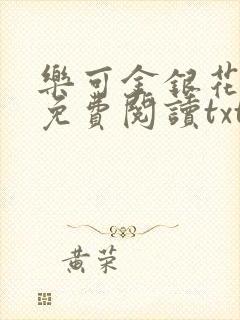 樂可金銀花
免費閱讀txt
黃荣